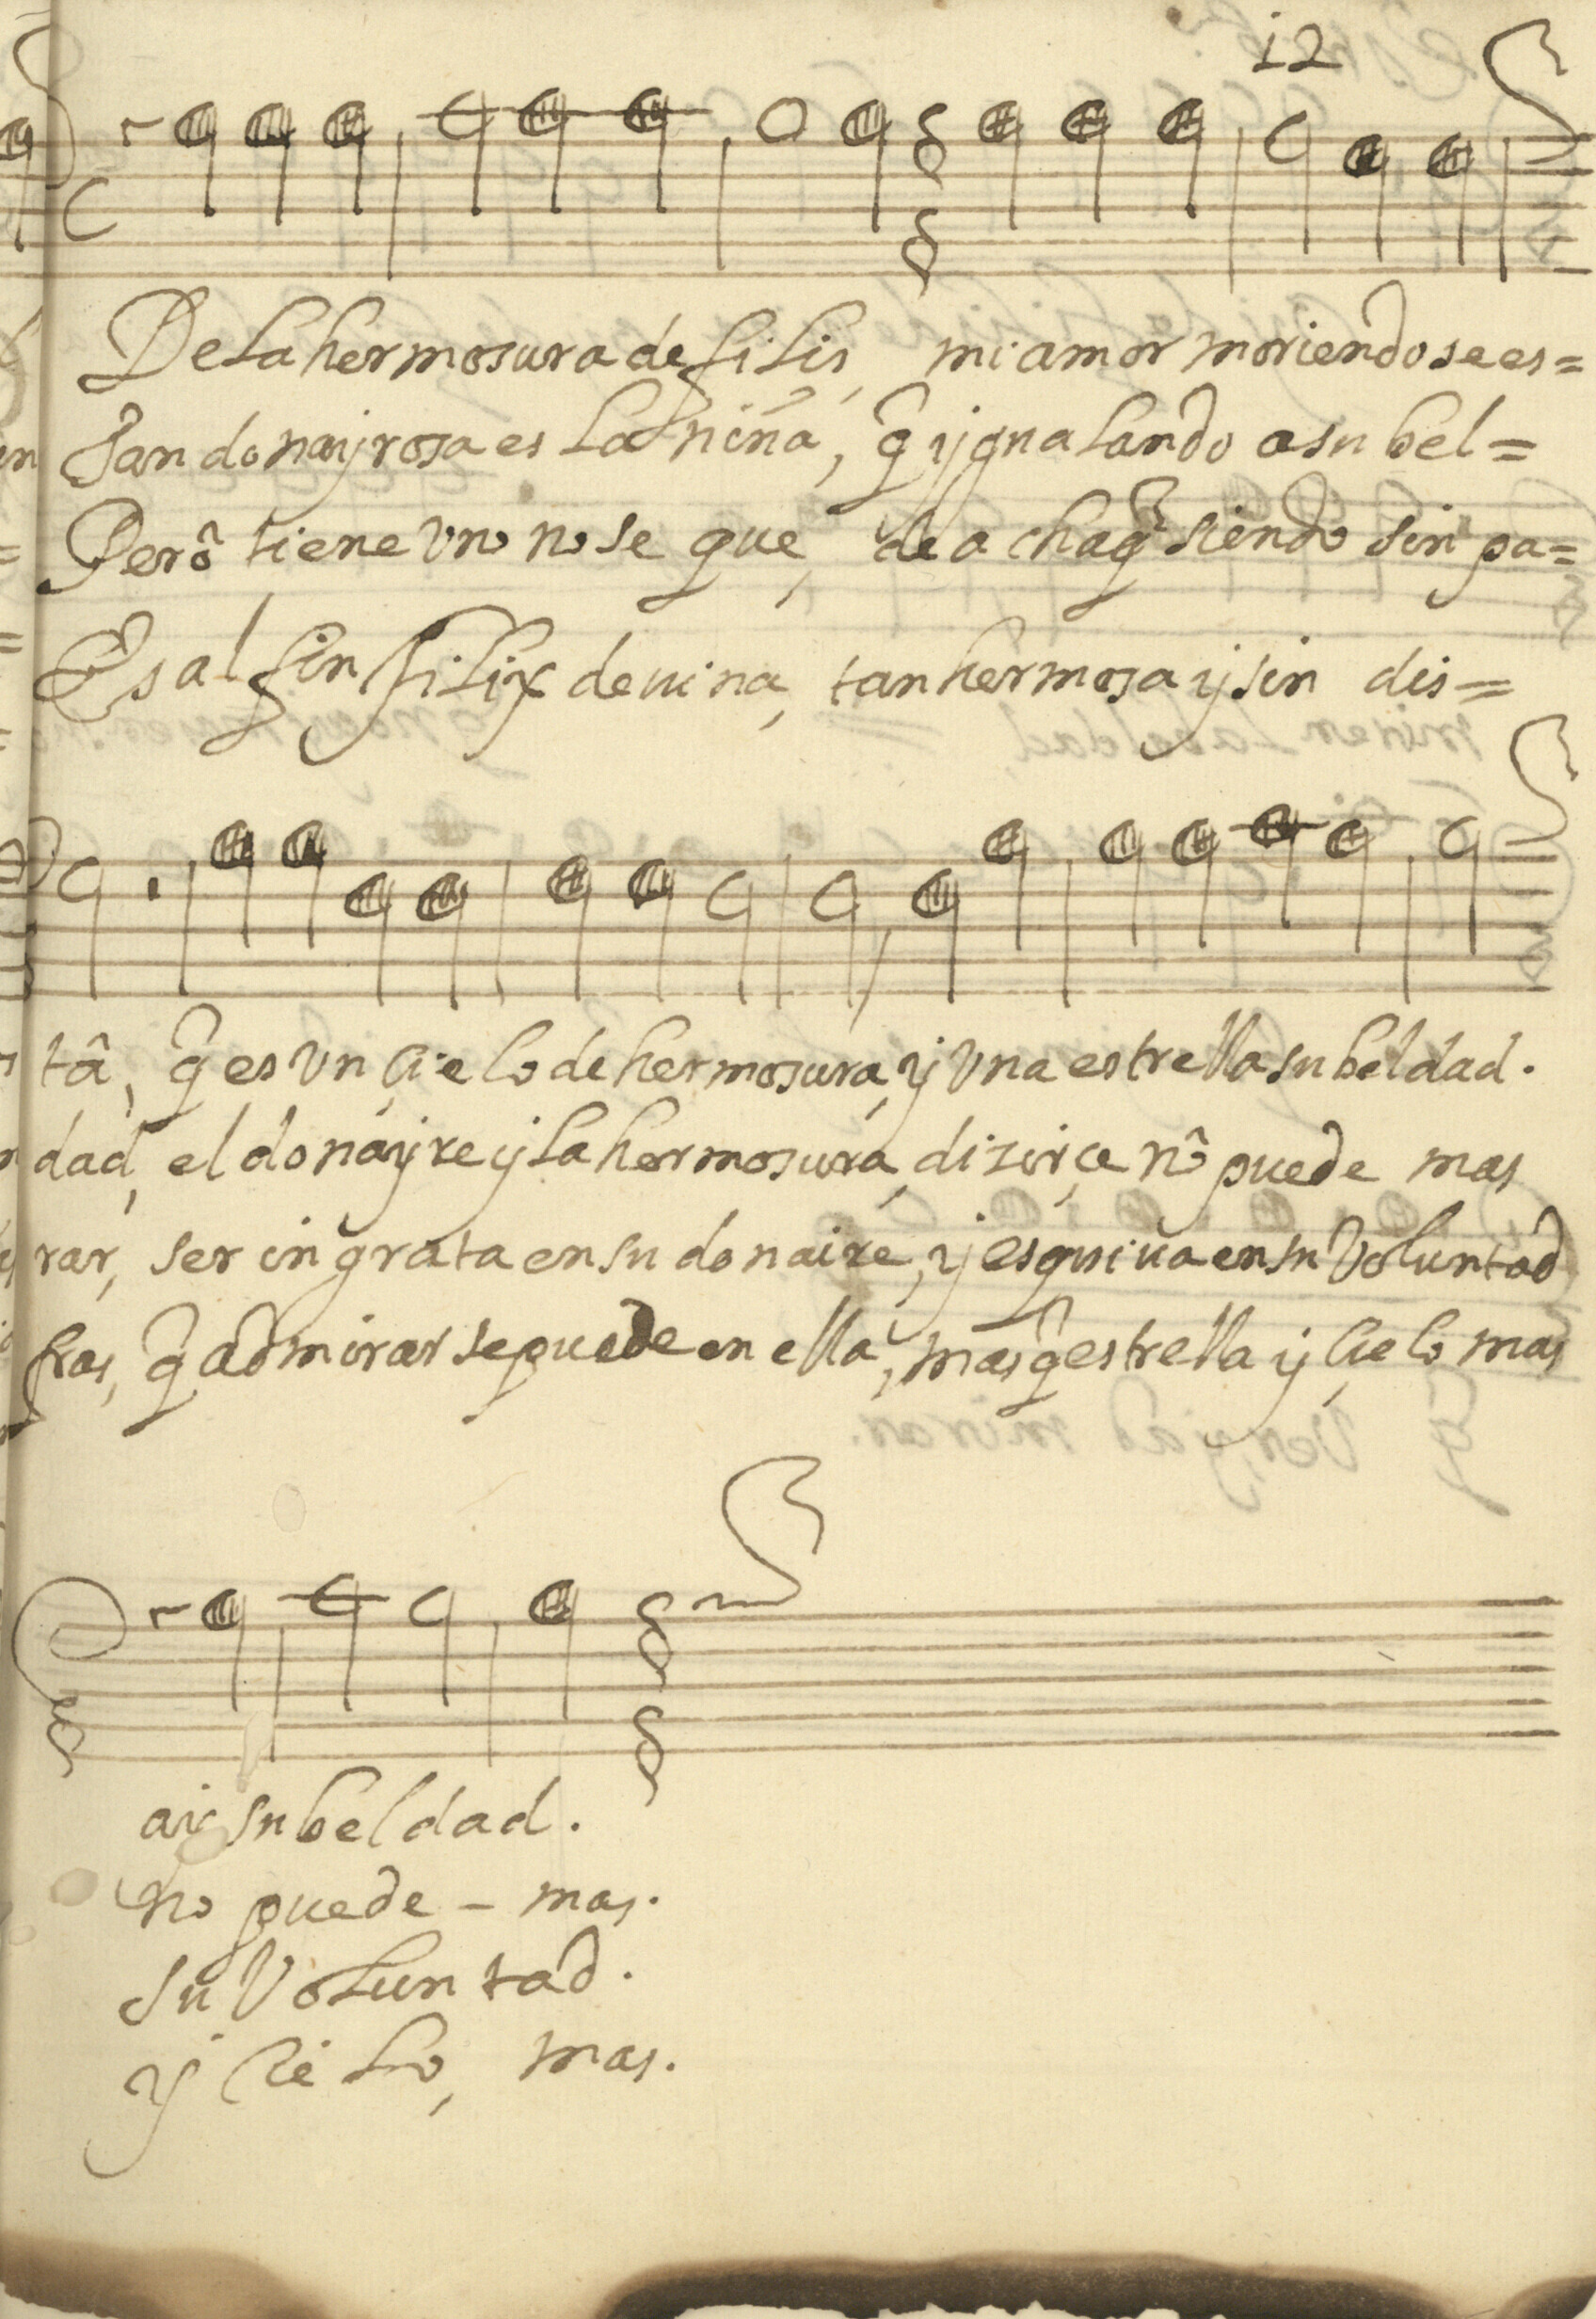 12
De la hermosura de filis, mi amor moriendo se es=
Tan donayrosa es la niña, q̃ ygualando a su bel=
Però tiene vn no se que, de achaq̃ siendo sin pa=
Es al fin filix deuina, tan hermosa y sin dis=
tâ, q̃ es vn çielo de hermosura, y vna estrella su beldad.
dad, el donayre y la hermosura, dizirçe nô puede mas
rar, ser ingrata en su donaire, y esquiua en su voluntad
fras, q̃ admirar se puede en ella, mas q̃ estrella y çielo mas
su beldad.
no puede - mas.
su voluntad.
y çielo, mas.